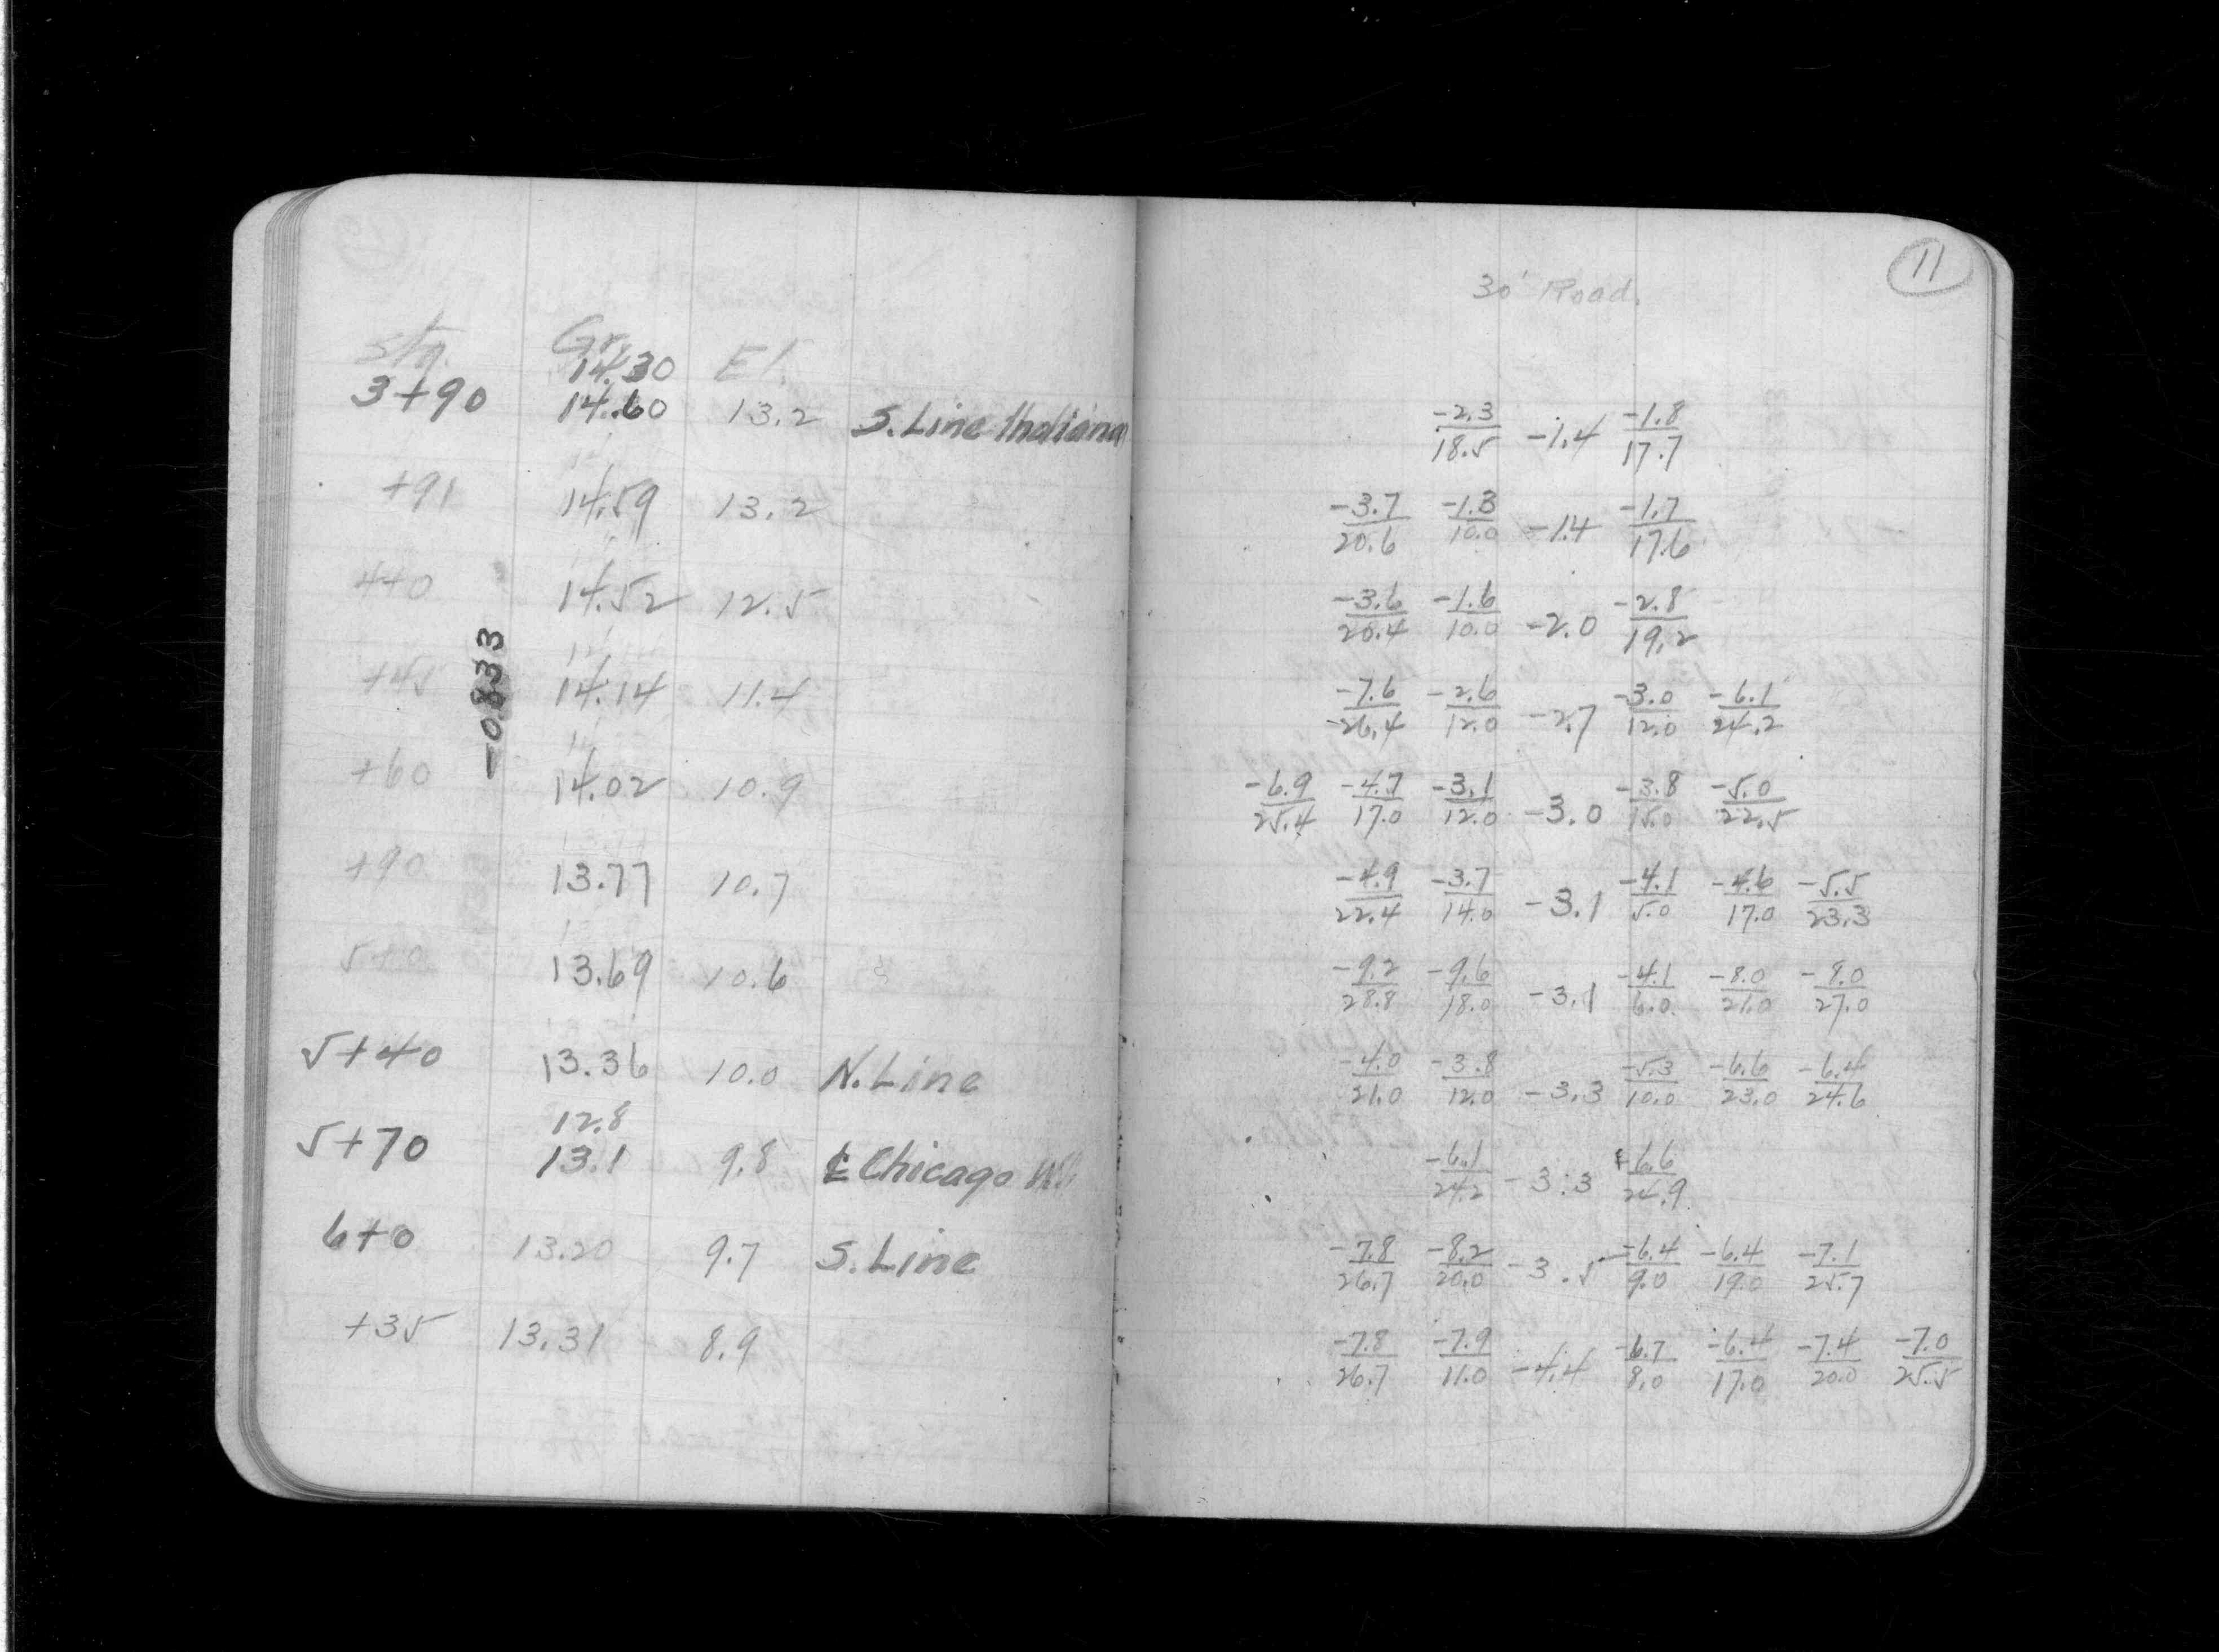 Sta. Gr. El.
14.30
3+90 14.60 13.2 S. Line Indiana
+91 14.59 13.2
4+0 14.52 12.5
+45 14.14 11.4
-0.833
+60 14.02 10.9
+90 13.77 10.7
5+0 13.69 10.6
5+40 13.36 10.0 N. Line
12.8
5+70 13.1 9.8 ℄ Chicago
6+0 13.20 9.7 S. Line
+35 13.31 8.9
11
30' Road.
-2.3/18.5 -1.4 -1.8/17.7
-3.7/20.6 -1.3/10.0 -1.4 -1.7/17.6
-3.6/20.4 -1.6/10.0 -2.0 -2.8/19.2
-7.6/26.4 -2.6/12.0 -2.7 -3.0/12.0 -6.1/24.2
-6.9/25.4 -4.7/17.0 -3.1/12.0 -3.0 -3.8/15.0 -5.0/22.5
-4.9/22.4 -3.7/14.0 -3.1 -4.1/5.0 -4.6/17.0 -5.5/23.3
-9.2/28.8 -9.6/18.0 -3.1 -4.1/6.0 -8.0/21.0 -8.0/27.0
-4.0/21.0 -3.8/12.0 -3.3 -5.3/10.0 -6.6/23.0 -6.4/24.6
-6.1/24.2 -3.3 -6.6/24.9
-7.8/26.7 -8.2/20.0 -3.5 -6.4/9.0 -6.4/19.0 -7.1/25.7
-7.8/26.7 -7.9/11.0 -4.4 -6.7/8.0 -6.4/17.0 -7.4/20.0 -7.0/25.5